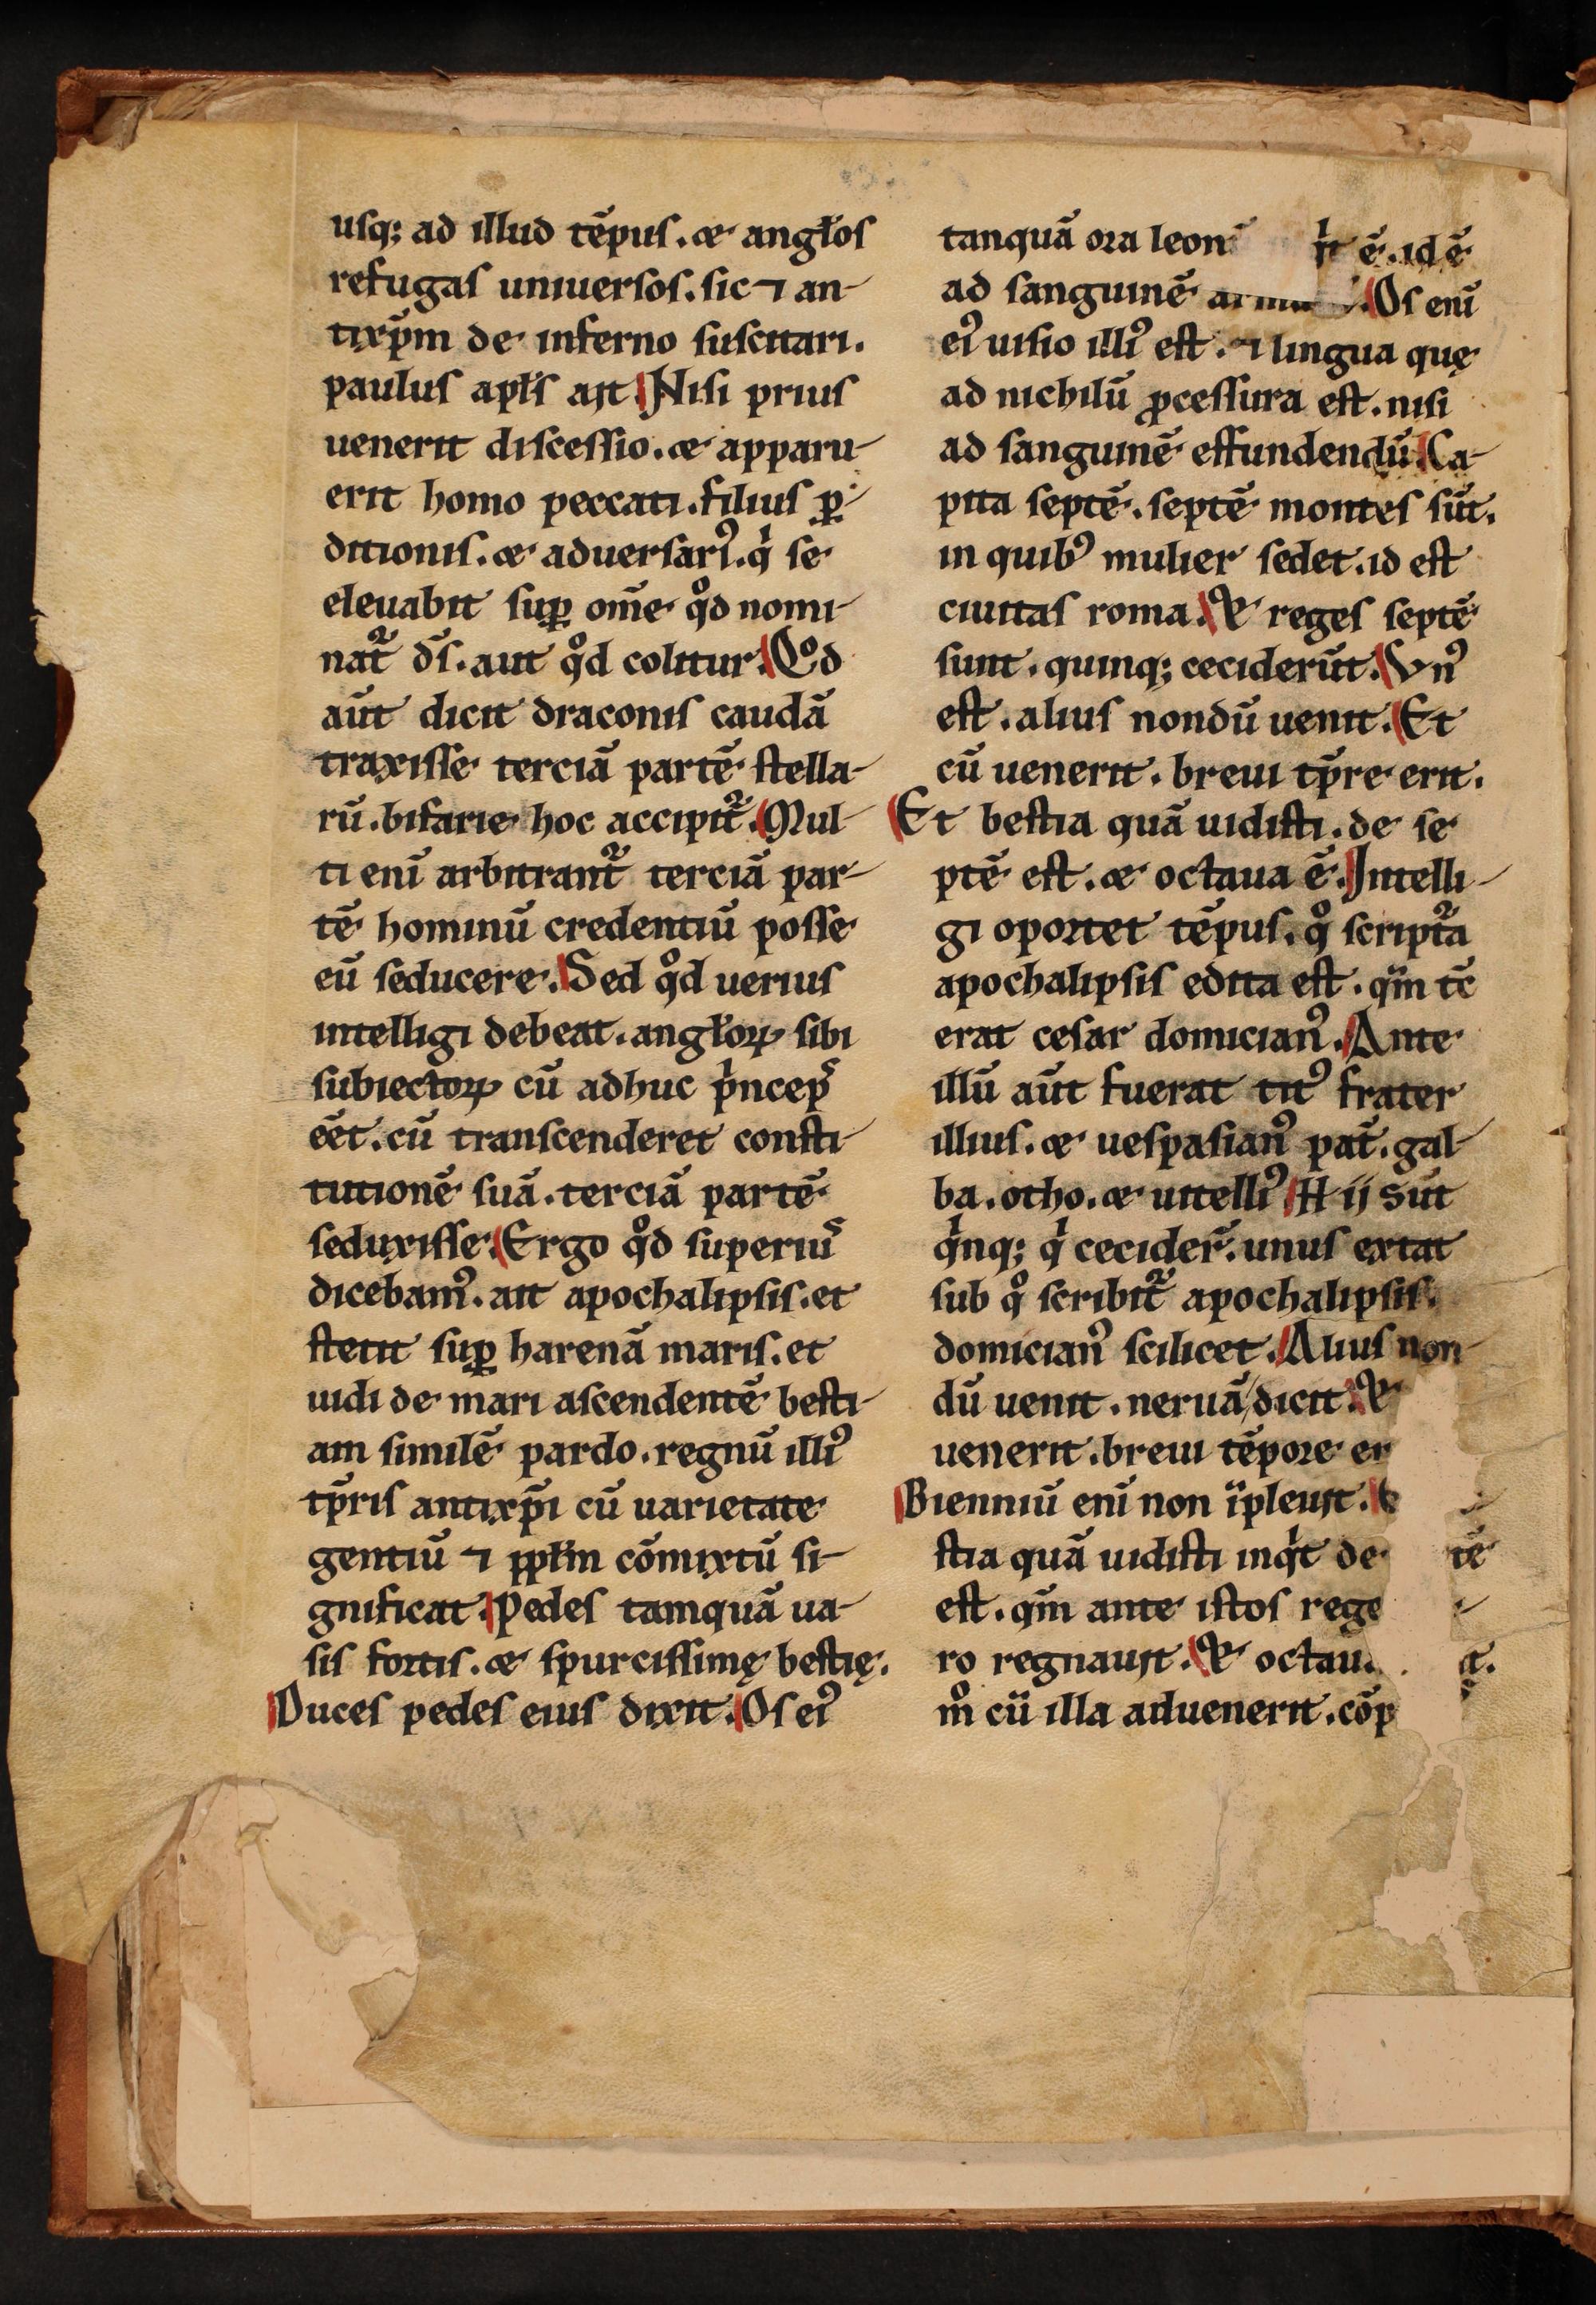 usq; ad illud tēpus. & angl̄os
refugas uniuersos. sic ⁊ an-
tixp̄m de inferno suscitari.
paulus apl̄s ait. Nisi prius
uenerit discessio. & apparu-
erit homo peccati. filius ꝑ-
ditionis. & aduersari᾿. qͥ se
eleuabit suꝑ om̄e qͦd nomi-
nat᷑ ds̄. aut qͦd colitur. Qͦd
aūt dicit draconis caudā
traxisse terciā partē stella-
rū. bifarie hoc accipit᷑. Mul-
ti enī arbitrant᷑ terciā par-
tē hominū credentiū posse
eū seducere. Sed qͦd uerius
intelligi debeat. angl̄oꝝ sibi
subiectoꝝ cū adhuc pͥncepˢ
eēt. cū transcenderet consti-
tutionē suā. terciā partē
seduxisse. Ergo qͦd superiuˢ
dicebamꝰ. ait apochalipsis. et
stetit suꝑ harenā maris. et
uidi de mari ascendentē besti-
am similē pardo. regnū illiꝰ
tp̄ris antixp̄i cū uarietate
gentiū ⁊ ppl̄m cōmixtū si-
gnificat. Pedes tamquā ua-
sis fortis. & spurcissimę bestię.
Duces pedes eius dixit. Os eiꝰ
tanquā ora leon ē. id ē
ad sanguinē Os enī
eiꝰ uisio illiꝰ est. ⁊ lingua quę
ad nichilū ꝓcessura est. nisi
ad sanguinē effundendū. Ca-
pita septē. septē montes sūt.
in quibꝰ mulier sedet. id est
ciuitas roma. & reges septē
sunt. quinq; ceciderūt. Vnꝰ
est. alius nondū uenit. Et
cū uenerit. breui tp̄re erit.
Et bestia quā uidisti. de se
ptē est. & octaua ē. Intelli-
gi oportet tēpus. qͦ script᷑a
apochalipsis edita est. qm̄ tc̄
erat cesar domicianꝰ. Ante
illū aūt fuerat titꝰ frater
illius. & uespasianꝰ pat̄. gal-
ba. otho. & uitelliꝰ. Hij sūt
qͥnq; qͥ cecider̄. unus extat
sub qͦ scribit᷑ apochalipsis.
domicianꝰ scilicet. Alius non-
dū uenit. neruā dicit. &
uenerit. breui tēpore er
Bienniū enī non īpleuit.
stia quā uidisti inqͥt de tē
est. qm̄ ante istos rege
ro regnauit. & octau
mͦ cū illa aduenerit. cōp